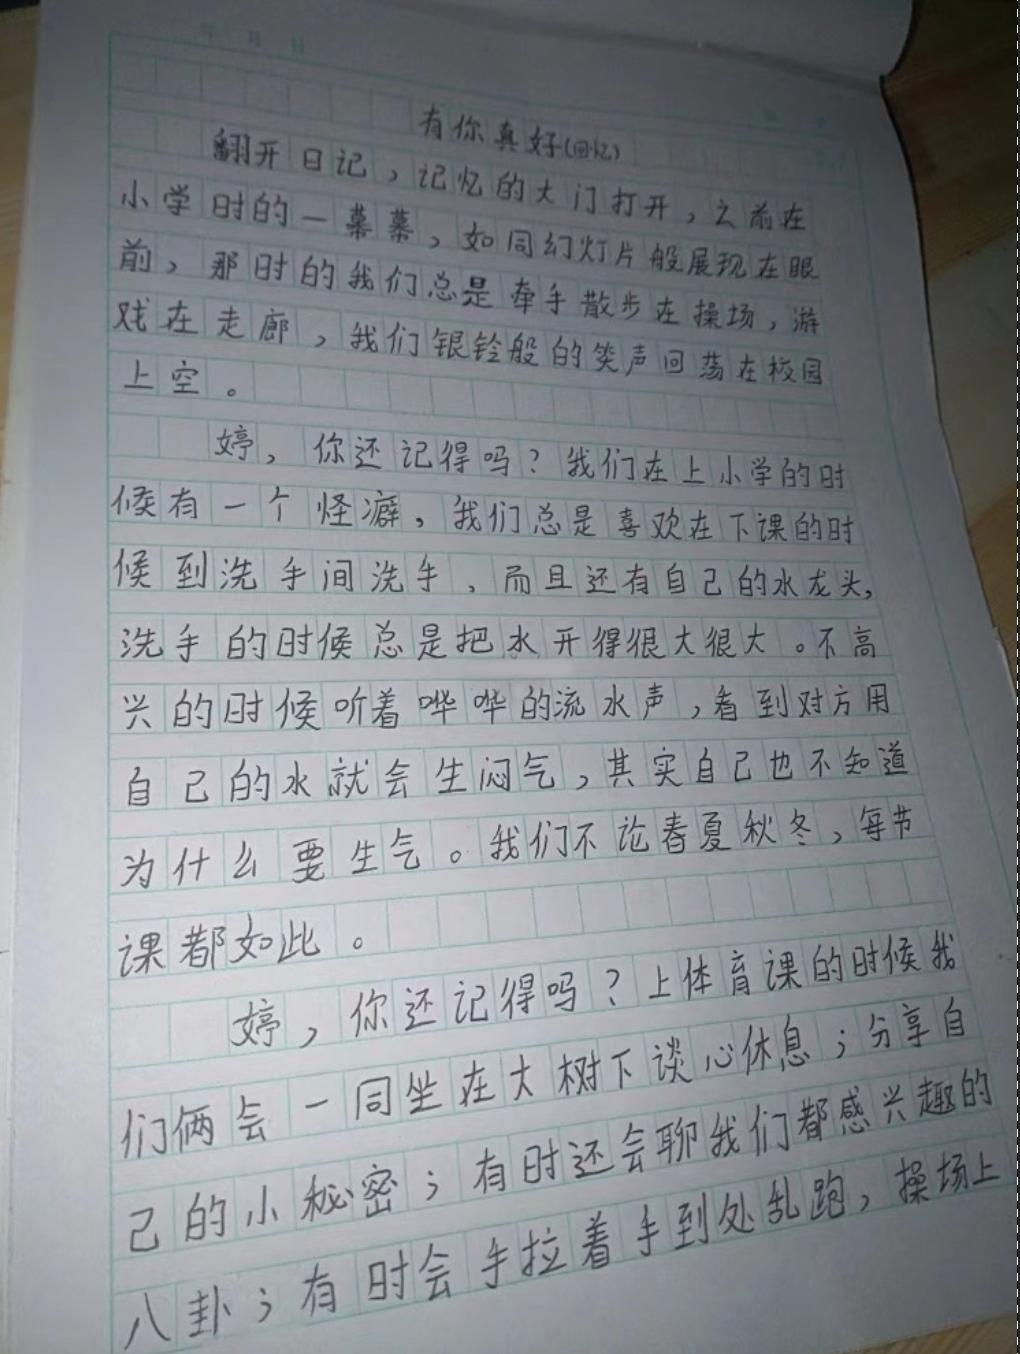 年 月 日
有你真好(回忆)
翻开日记，记忆的大门打开，之前在
小学时的一幕幕，如同幻灯片般展现在眼
前，那时的我们总是牵手散步在操场，游
戏在走廊，我们银铃般的笑声回荡在校园
上空。
婷，你还记得吗？我们在上小学的时
候有一个怪癖，我们总是喜欢在下课的时
候到洗手间洗手，而且还有自己的水龙头，
洗手的时候总是把水开得很大很大。不高
兴的时候听着哗哗的流水声，看到对方用
自己的水就会生闷气，其实自己也不知道
为什么要生气。我们不论春夏秋冬，每节
课都如此。
婷，你还记得吗？上体育课的时候我
们俩会一同坐在大树下谈心休息；分享自
己的小秘密；有时还会聊我们都感兴趣的
八卦；有时会手拉着手到处乱跑，操场上